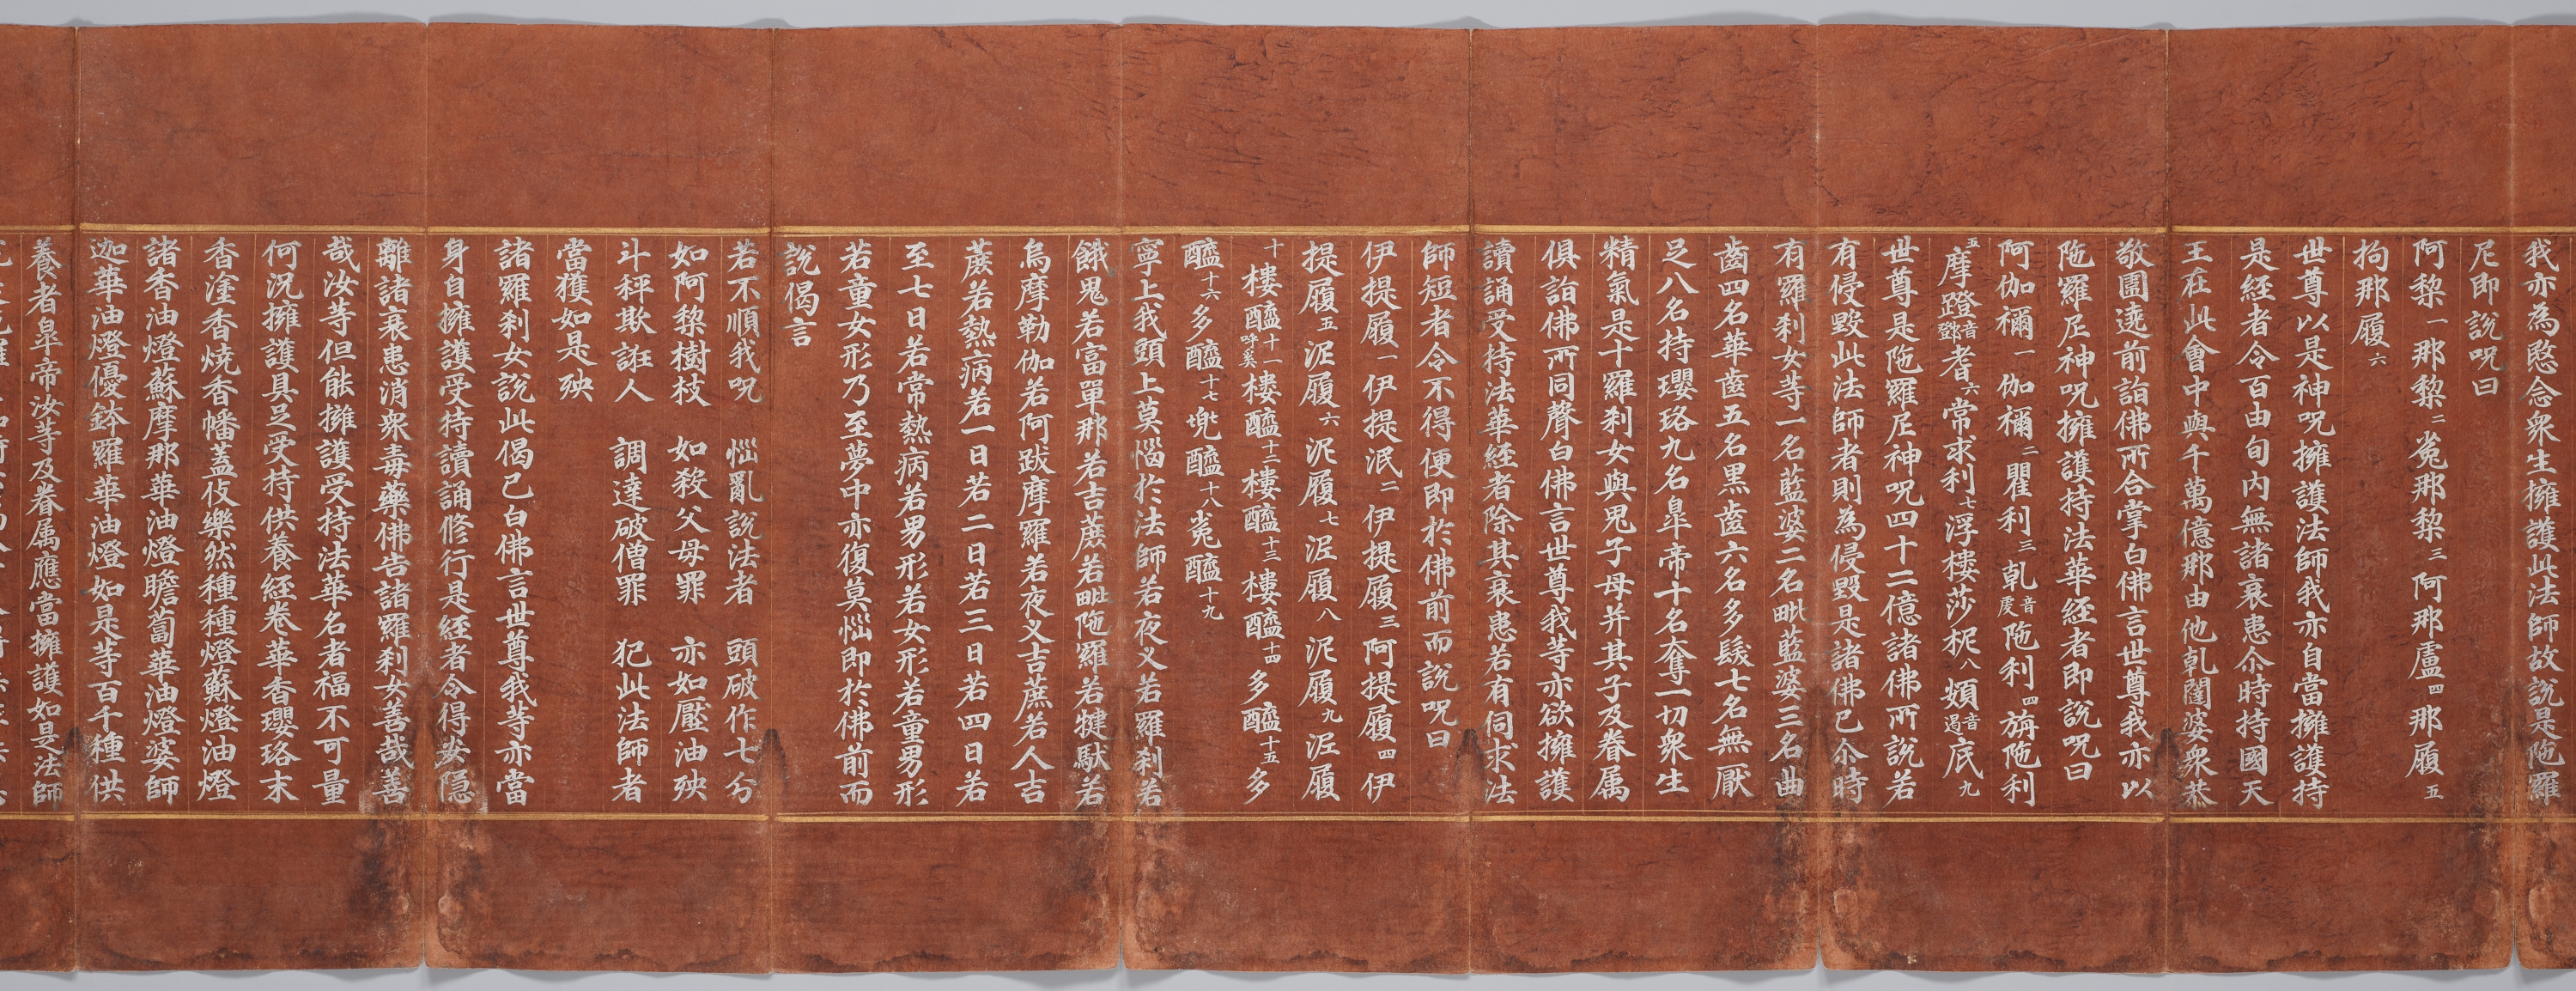 我亦為愍念眾生擁護此法師故說是陁羅
尼即說呪曰
阿黎一那黎二㝹那黎三阿那盧四那履五
拘那履六
世尊以是神呪擁護法師我亦自當擁護持
是經者令百由旬內無諸衰患尒時持國天
王在此會中與千萬億那由他乹闥婆衆恭
敬圍遶前詣佛所合掌白佛言世尊我亦以
陁羅尼神呪擁護持法華經者即說呪曰
阿伽禰一伽禰二瞿利三乹音度陁利四旃陁利
五摩蹬音鄧耆六常求利七浮樓莎柅八頞音遏底九
世尊是陁羅尼神呪四十二億諸佛所說若
有侵毀此法師者則為侵毀是諸佛已尒時
有羅刹女等一名藍婆二名毗藍婆三名曲
齒四名華齒五名黑齒六名多髮七名無厭
足八名持瓔珞九名皐帝十名奪一切衆生
精氣是十羅刹女與鬼子母并其子及眷属
俱詣佛所同聲白佛言世尊我等亦欲擁護
讀誦受持法華經者除其衰患若有伺求法
師短者令不得便即於佛前而說呪曰
伊提履一伊提泯二伊提履三阿提履四伊
提履五泥履六泥履七泥履八泥履九泥履
十樓醯呼奚十一樓醯十二樓醯十三樓醯十四多醯十五多
醯十六多醯十七兠醯十八㝹醯十九
寧上我頭上莫惱於法師若夜叉若羅刹若
餓鬼若富單那若吉蔗若毗陁羅若犍馱若
烏摩勒伽若阿跋摩羅若夜叉吉蔗若人吉
蔗若熱病若一日若二日若三日若四日若
至七日若常熱病若男形若女形若童男形
若童女形乃至夢中亦復莫惱即於佛前而
說偈言
若不順我呪　惱亂說法者　頭破作七分
如阿黎樹枝　如殺父母罪　亦如壓油殃
斗秤欺誑人　調達破僧罪　犯此法師者
當獲如是殃
諸羅刹女說此偈已白佛言世尊我等亦當
身自擁護受持讀誦修行是經者令得安隱
離諸衰患消衆毒藥佛告諸羅刹女善哉善
哉汝等但能擁護受持法華名者福不可量
何況擁護具足受持供養經卷華香瓔珞末
香塗香燒香幡蓋伎樂然種種燈蘇燈油燈
諸香油燈蘇摩那華油燈瞻蔔華油燈婆師
迦華油燈優鉢羅華油燈如是等百千種供
養者皐帝汝等及眷属應當擁護如是法師